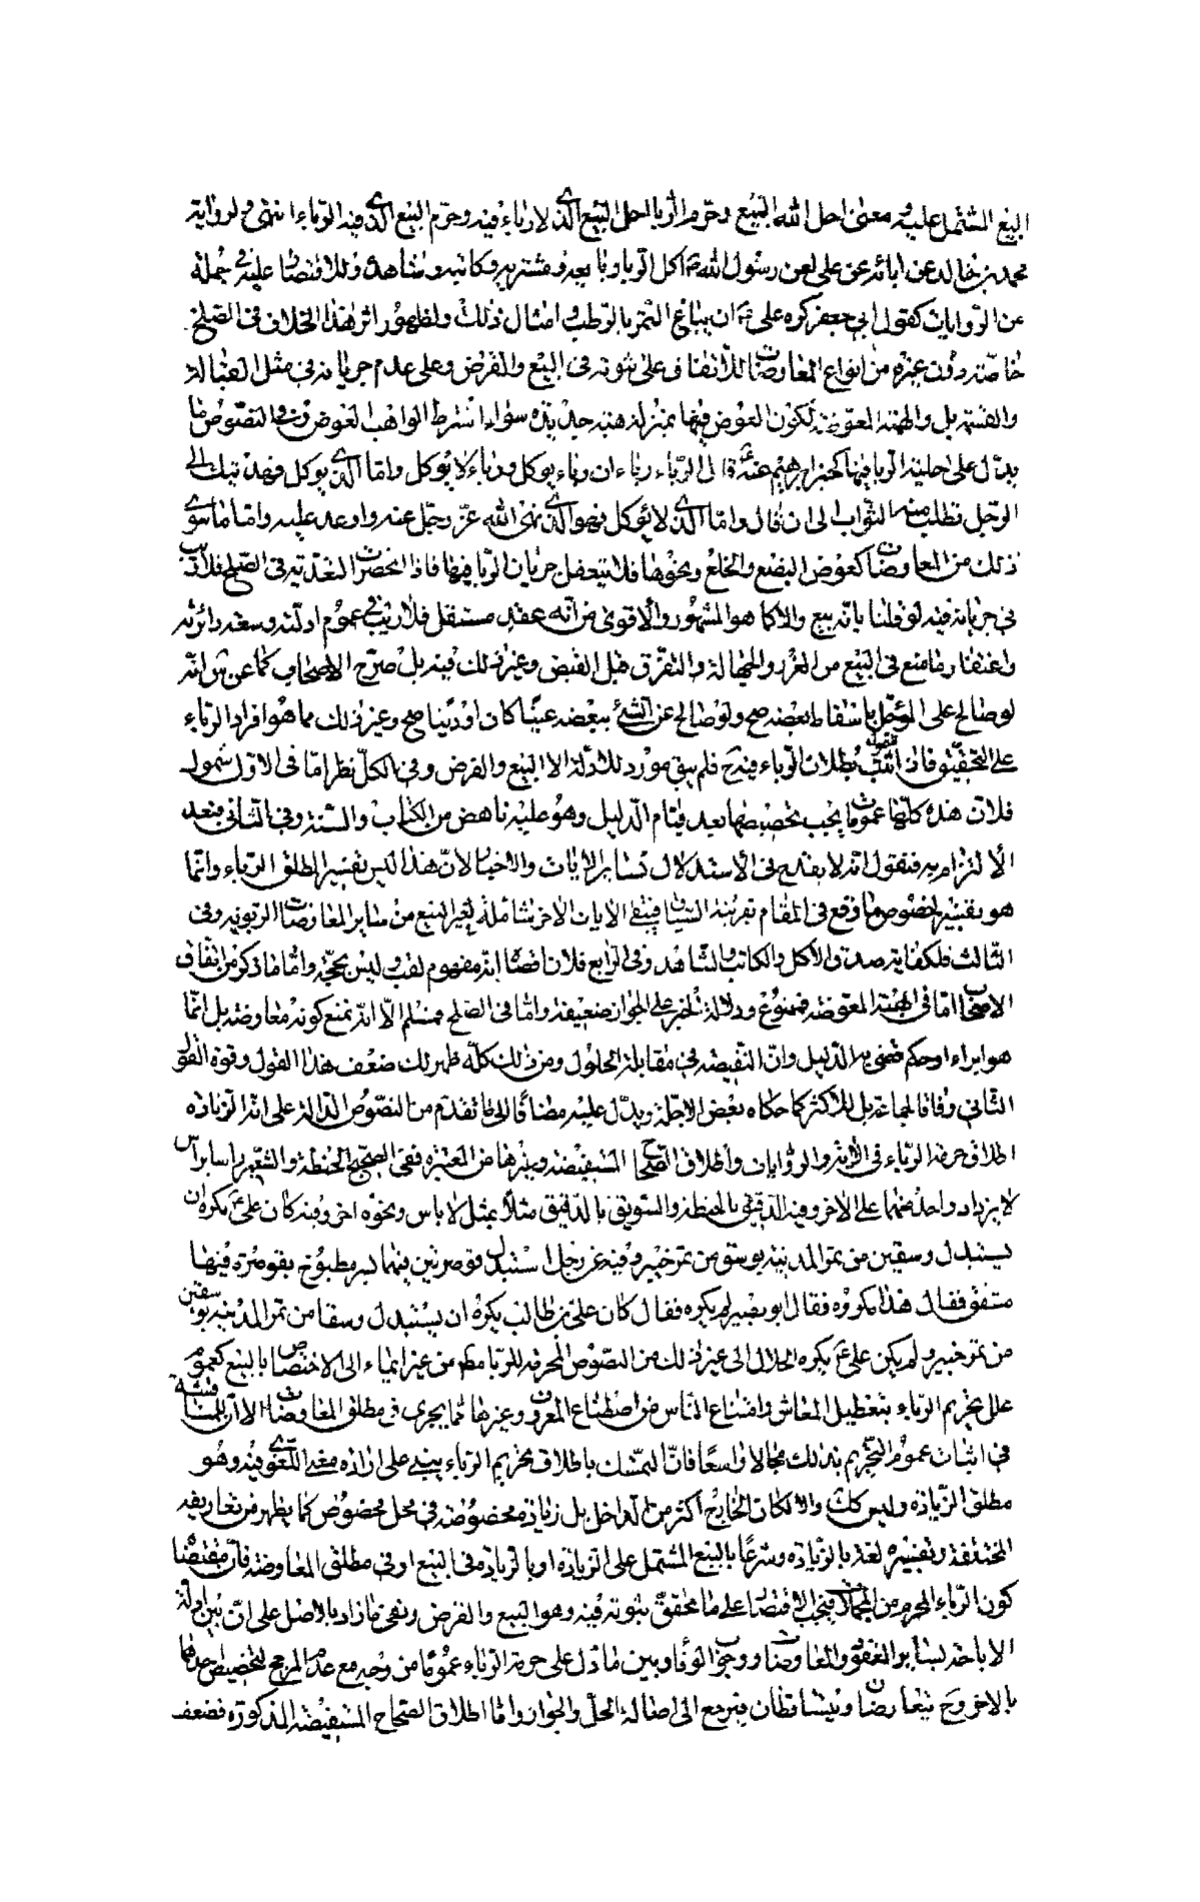 البيع المشتمل عليه معنى احل الله البيع وحرم الربا احل البيع الذي لا رباء فيه وحرم البيع الذي فيه الرباء انتهى ولرواية
محمد بن خالد عن ابائه عن علي لعن رسول الله ص اكل الربا وبايعه ومشتريه وكاتبه وشاهديه وللاقتصار عليه في جملة
من الروايات كقول ابي جعفر كره علي ع ان يباع التمر بالرطب وامثال ذلك ولظهور اثر هذا الخلاف في الصلح
خاصة دون غيره من انواع المعاوضات للاتفاق على ثبوته في البيع والقرض وعلى عدم جريانه في مثل القبالة
والقسمة بل والهبة المعوضة لكون العوض فيها بمنزلة هبة جديدة سواء اشترط الواهب العوض وفي النصوص ما
يدل على حلية الربا فيها كخبر ابرهيم عنه ع الرباء رباء ان رباء يوكل ورباء لا يوكل واما الذي يوكل فهديتك الى
الرجل تطلب منه الثواب الى ان قال واما الذي لا يوكل فهو الذي نهى الله عز وجل عنه واوعد عليه واما ما سوى
ذلك من المعاوضات كعوض البضع والخلع ونحوها فلا يتعقل جريان الربا فيها فاذا انحصرت التعدية في الصلح فلا ريب
في جريانه فيه لو قلنا بانه بيع والا كما هو المشهور والاقوى من انه عقد مستقل فلا ريب في عموم ادلته وسعة دائرته
واغتفار ما منع في البيع من الغرر والجهالة والتفرق قبل القبض وغير ذلك فيه بل صرح الاصحاب كما عن انه
لو صالح على المؤجل باسقاط بعضه صح ولو صالح عن الشئ ببعضه عينا كان او دينا صح وغير ذلك مما هو افراد الرباء
على التحقيق فاذا ثبت بطلان الرباء فيه ح فلم يبق مورد للادلة الا البيع والقرض وفي الكل نظر اما في الاول شموله
فلان هذه كلها عمومات يجب تخصيصها بعد قيام الدليل وهو عليه ناهض من الكتاب والسنة وفي الثاني فبعد
الالتزام به فنقول انه لا يقدح في الاستدلال بساير الايات والاخبار لان هذا ليس تفسير المطلق الرباء وانما
هو تفسير لخصوص ما وقع في المقام بقرينة السياق فيبقى الايات الاخر شاملة لغير البيع من ساير المعاوضات الربوية وفي
الثالث فلكفاية صدق الاكل والكاتب والشاهد وفي الرابع فلان اقصاه انه مفهوم لقب وليس بحجة واما ما ذكر من اتفاق
الاصحاب اما في الهبة المعوضة فممنوع ودلالة الخبر على الجواز ضعيفة واما في الصلح فمسلم الا انه نمنع كونه معاوضة بل انما
هو ابراء او حكم قضى به الدليل وان النقيصة في مقابلة الحلول ومن ذلك كله ظهر لك ضعف هذا القول وقوة القول
الثاني وفاقا لجماعة بل للاكثر كما حكاه بعض الاجلة ويدل عليه مضافا الى ما تقدم من النصوص الدالة على انه الزيادة
اطلاق حرمة الرباء في الاية والروايات واطلاق الصحاح المستفيضة وغيرها من المعتبرة ففي الصحيح الحنطة والشعير راسا برأس
لا يزداد واحد منهما على الاخر وفيه الدقيق بالحنطة والسويق بالدقيق مثلا بمثل لا باس ونحوه اخر وفيه كان علي ع يكره ان
يستبدل وسقين من تمر المدينة بوسق من تمر خيبر وفيه عن رجل استبدل قوصرتين فيهما بسر مطبوخ بقوصرة فيها
مشقق فقال هذا مكروه فقال ابو بصير لم يكره فقال كان علي بن ابي طالب يكره ان يستبدل وسقا من تمر المدينة بوسقين
من تمر خيبر ولم يكن علي ع يكره الحلال الى غير ذلك من النصوص المحرمة للربا مطلقا من غير ايماء الى الاختصاص بالبيع كعموم
علل تحريم الرباء بتعطيل المعاش وامتناع الناس من اصطناع المعروف وغيرها مما يجري في مطلق المعاوضات الا ان للمناقشة
في اثبات عموم التحريم بذلك مجالا واسعا فان التمسك باطلاق تحريم الرباء يبنى على ارادة معنى اللغوي فيه وهو
مطلق الزيادة وليس كك والا لكان الخارج اكثر من الداخل بل زيادة مخصوصة في محل مخصوص كما يظهر من تعاريفه
المختلفة وتفسيره لغة بالزيادة وشرعا بالبيع المشتمل على الزيادة او بالزيادة في البيع او في مطلق المعاوضة فان مقتضاها
كون الرباء المحرم من المجملات فيجب الاقتصار على ما تحقق ثبوته فيه وهو البيع والقرض ونفي ما زاد بالاصل على ان بين ادلة
الاباحة لساير العقود والمعاوضات ووجوب الوفاء وبين ما دل على حرمة الرباء عموما من وجه مع عدم المرجح لتخصيص احدهما
بالاخر وح يتعارضان ويتساقطان فيرجع الى اصالة الحل والجواز واما اطلاق الصحاح المستفيضة المذكورة فضعف